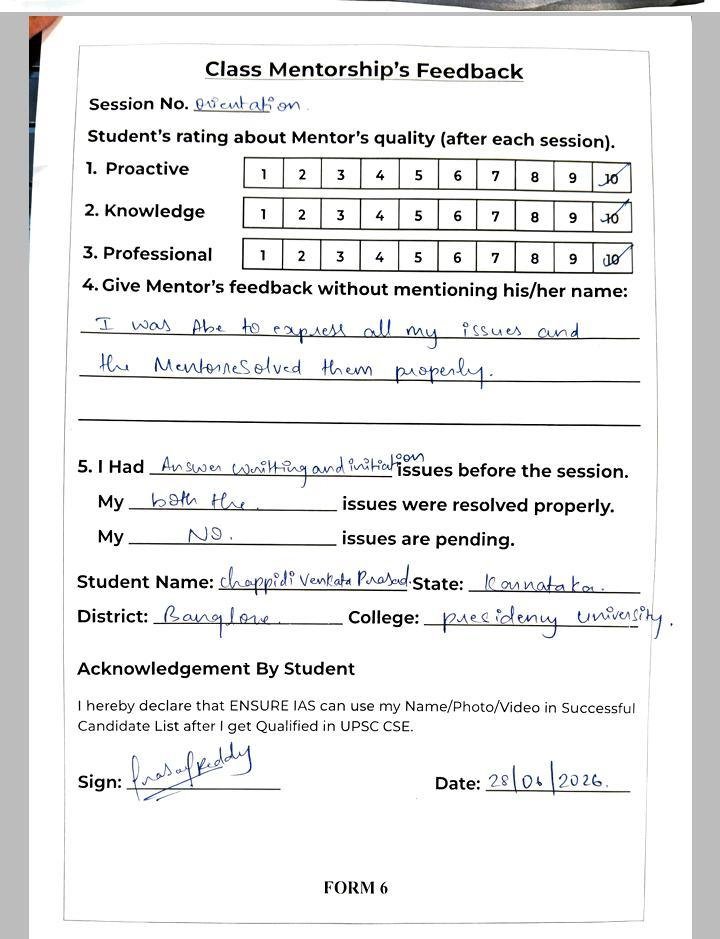 Class Mentorship's Feedback
Session No. orientation.
Student's rating about Mentor's quality (after each session).
1. Proactive 1 2 3 4 5 6 7 8 9 10
2. Knowledge 1 2 3 4 5 6 7 8 9 10
3. Professional 1 2 3 4 5 6 7 8 9 10
4. Give Mentor's feedback without mentioning his/her name:
I was Abe to express all my issues and
the Mentor resolved them properly.
5. I Had Answer writting and initiation issues before the session.
My both the issues were resolved properly.
My NO. issues are pending.
Student Name: Chappidi Venkata Prasad. State: Karnataka.
District: Banglore College: presidency university.
Acknowledgement By Student
I hereby declare that ENSURE IAS can use my Name/Photo/Video in Successful
Candidate List after I get Qualified in UPSC CSE.
Sign: PrasadReddy Date: 28/06/2026.
FORM 6